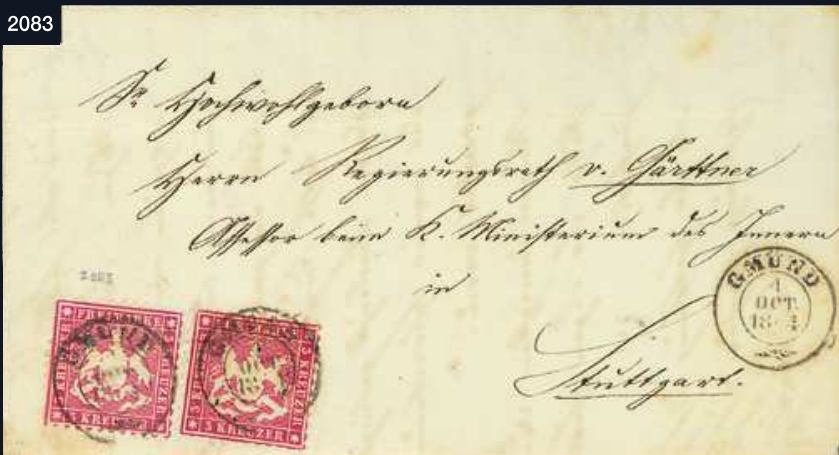 2083
Sr. Hochwohlgeborn
Herrn Regierungsrath v. Gärttner
Assessor beim K. Ministerium des Innern
in
Stuttgart.
GMÜND
1
OCT.
FREIMARKE
KREUZER
3 KREUZER
3 KREUZER
3 KREUZER